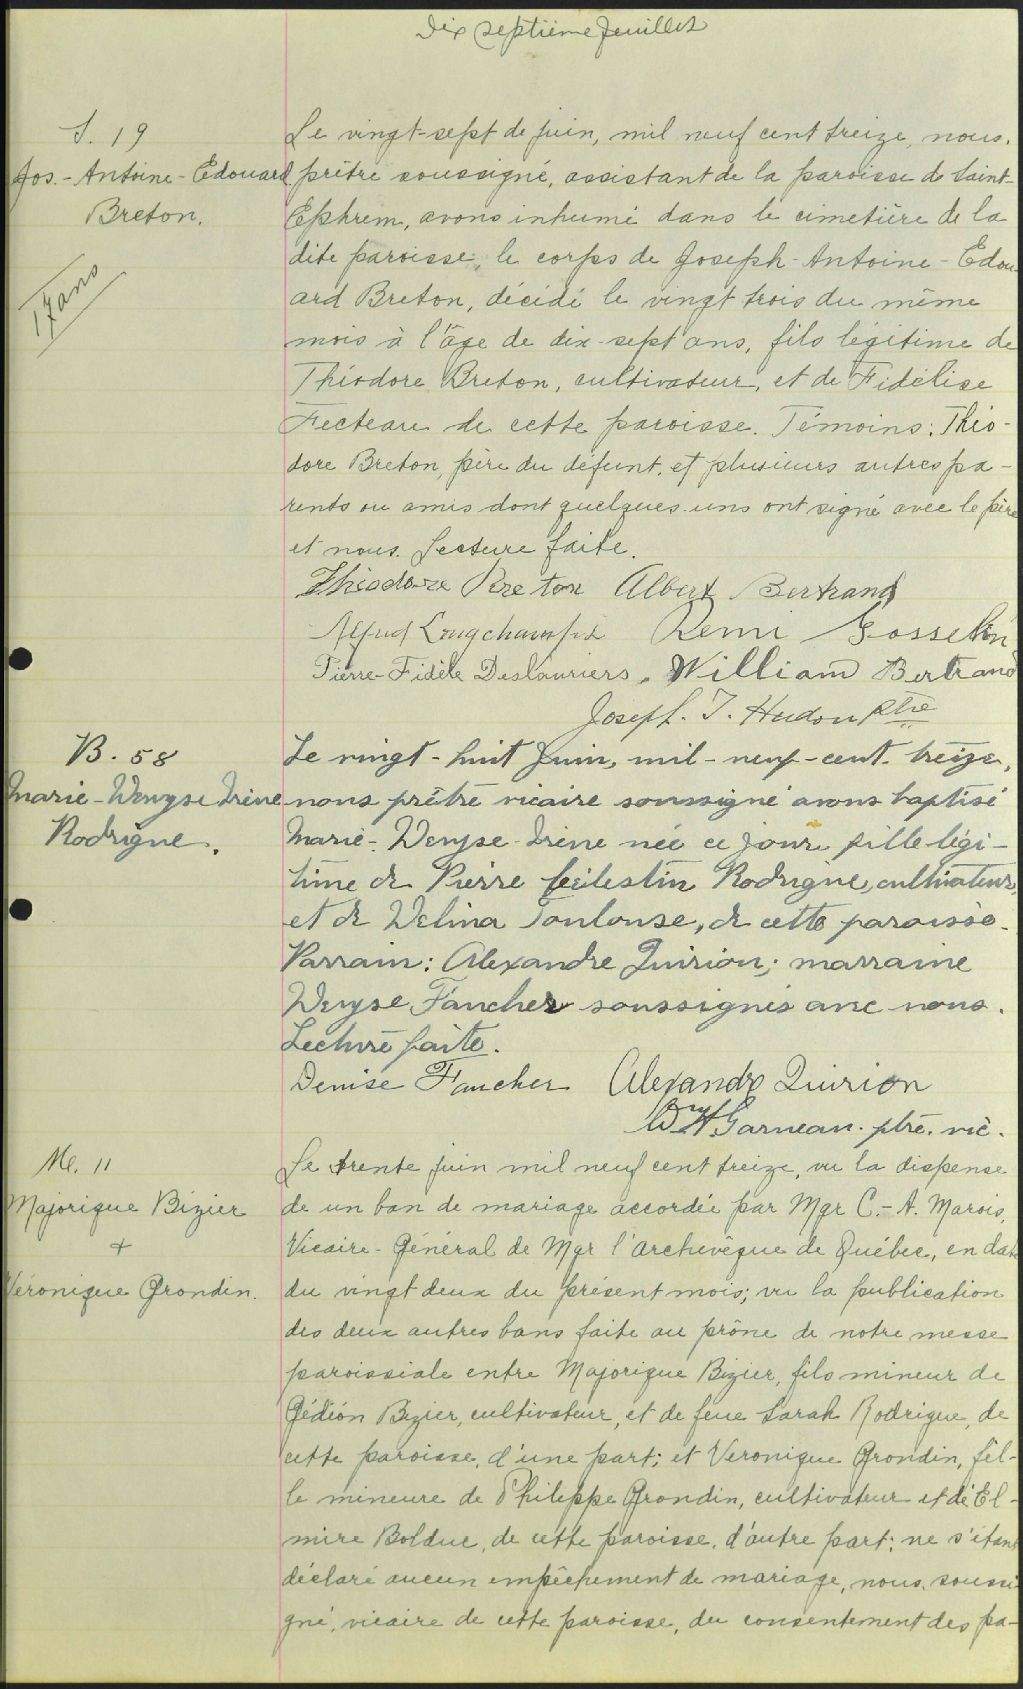 Dix septième feuillet
S. 19
Jos.-Antoine-Edouard
Breton.
17 ans
Le vingt-sept de juin, mil neuf cent treize, nous,
prêtre soussigné, assistant de la paroisse de Saint-
Ephrem, avons inhumé dans le cimetière de la
dite paroisse, le corps de Joseph-Antoine-Edou-
ard Breton, décédé le vingt trois du même
mois à l'âge de dix-sept ans, fils légitime de
Théodore Breton, cultivateur, et de Fidélise
Fecteau de cette paroisse. Témoins: Théo-
dore Breton, père du défunt, et plusieurs autres pa-
rents ou amis dont quelques uns ont signé avec le père
et nous. Lecture faite.
Théodore Breton Albert Bertrand
Alfred Longchamps Remi Gosselin
Pierre-Fidèle Deslauriers, William Bertrand
Joseph. T. Hudon Ptre
B. 58
Marie-Denyse Irène
Rodrigue.
Le vingt-huit Juin, mil-neuf-cent-treize,
nous prêtre vicaire soussigné avons baptisé
Marie-Denyse-Irène née ce jour fille légi-
time de Pierre Célestin Rodrigue, cultivateur,
et de Délina Toulouse, de cette paroisse.
Parrain: Alexandre Quirion; marraine
Denyse Faucher soussignés avec nous.
Lecture faite.
Denise Faucher Alexandre Quirion
Wm H. Garneau. ptre. vic.
M. 11
Majorique Bizier
+
Véronique Grondin.
Le trente juin mil neuf cent treize, vu la dispense
de un ban de mariage accordée par Mgr C.-A. Marois,
Vicaire-Général de Mgr l'archevêque de Québec, en date
du vingt deux du présent mois; vu la publication
des deux autres bans faite au prône de notre messe
paroissiale entre Majorique Bizier, fils mineur de
Gédéon Bizier, cultivateur, et de feue Sarah Rodrigue, de
cette paroisse, d'une part; et Veronique Grondin, fil-
le mineure de Philippe Grondin, cultivateur et de El-
mire Bolduc, de cette paroisse, d'autre part; ne s'étant
déclaré aucun empêchement de mariage, nous, soussi-
gné, vicaire de cette paroisse, du consentement des pa-